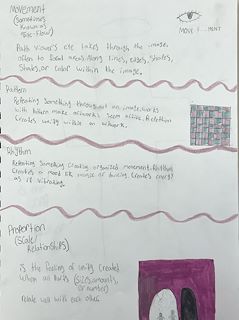 Movement
(Sometimes
Known as
The Flow)
MOVE MENT
Path viewer's eye takes through the image,
often to focal areas along lines, edges, shapes,
Shades, or color within the image.
Pattern
Repeating Something throughout an image. works
with to make artwork seem active. Repetition
Creates unity within an artwork.
Rhythm
Repeating Something Creating organized movement.
Creates a mood like music or dancing. Creates energy
as if vibrating.
Proportion
(Scale/
Relationships)
is the feeling of unity created
when all Parts (sizes, amounts,
or number)
relate well with each other